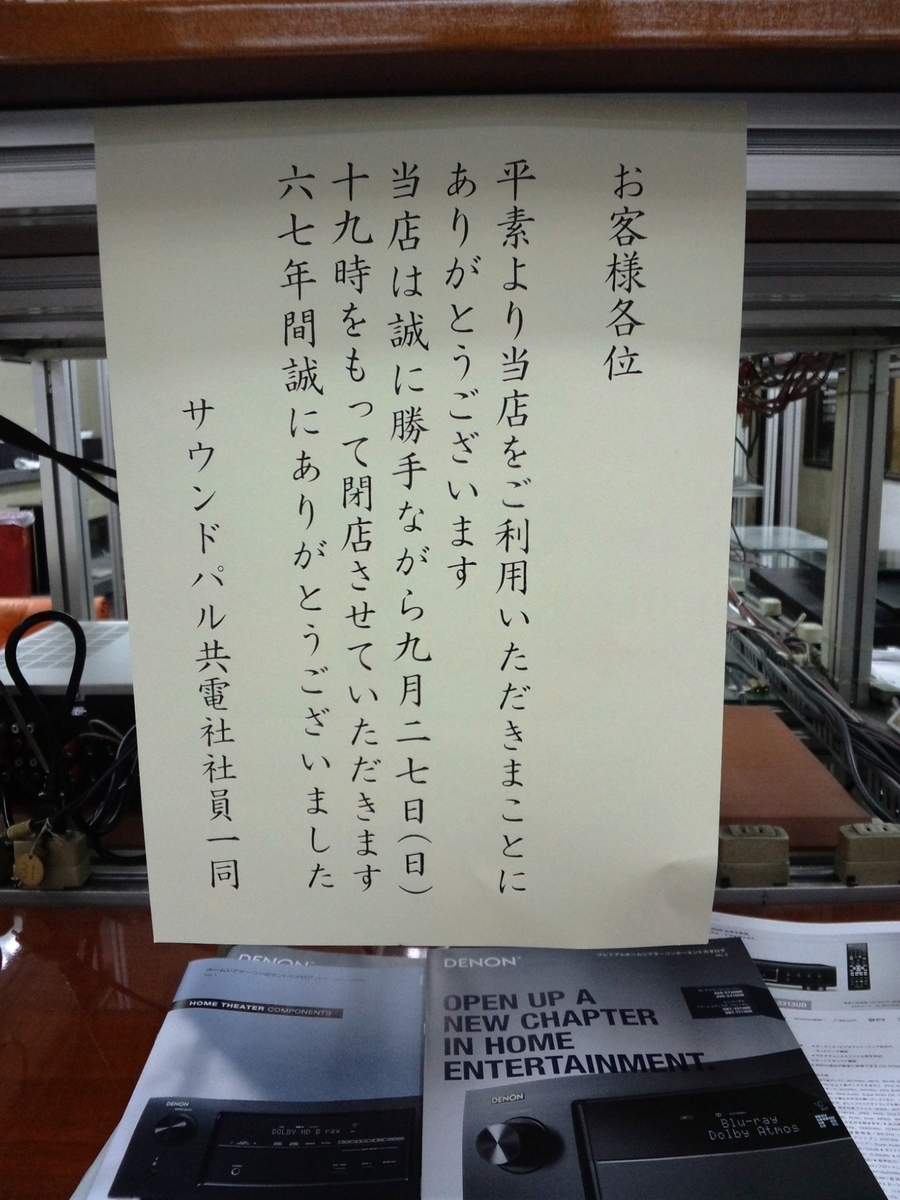 お客様各位
平素より当店をご利用いただきまことに
ありがとうございます
当店は誠に勝手ながら九月二七日(日)
十九時をもって閉店させていただきます
六七年間誠にありがとうございました
サウンドパル共電社社員一同
DENON
HOME THEATER COMPONENTS
DENON
DOLBY HD
DENON
プレミアムホームシアターコンポーネントカタログ
OPEN UP A
NEW CHAPTER
IN HOME
ENTERTAINMENT.
DENON
Blu-ray
Dolby Atmos
3313UD